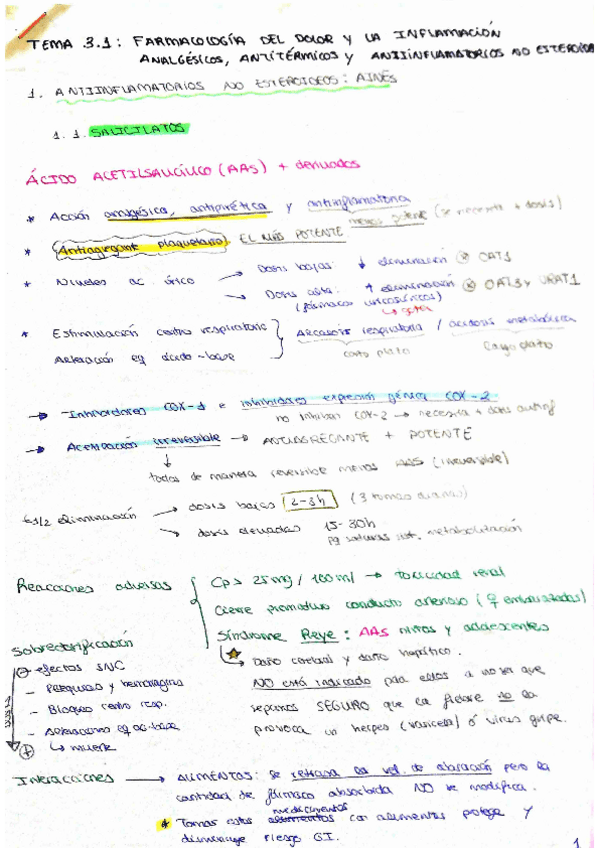 TEMA 3.1: FARMACOLOGÍA DEL DOLOR Y LA INFLAMACIÓN
ANALGÉSICOS, ANTITÉRMICOS Y ANTIINFLAMATORIOS NO ESTEROIDEOS
1. ANTIINFLAMATORIOS NO ESTEROIDEOS: AINES
1.1. SALICILATOS
ÁCIDO ACETILSALICÍLICO (AAS) + derivados
* Acción analgésica, antipirética y antiinflamatoria
menos potente (se necesita + dosis)
* Antiagregante plaquetario. EL MÁS POTENTE
* Niveles ac. úrico → Dosis bajas: ↓ eliminación ⊗ OAT1
→ Dosis alta: ↑ eliminación ⊗ OAT3 y URAT1
(fármacos uricosúricos)
↳ gota
* Estimulación centro respiratorio
Alteración eq ácido-base } Alcalosis respiratoria / acidosis metabólica
corto plazo largo plazo
→ Inhibidores COX-1 e inhibidores expresión génica COX-2
no inhiben COX-2 → necesita + dosis antinf
→ Acetilación irreversible → ANTIAGREGANTE + POTENTE
↓
todos de manera reversible menos AAS (irreversible)
t1/2 eliminación → dosis bajas 2-3h (3 tomas diarias)
→ dosis elevadas 15-30h
pq saturas sist. metabolización
Reacciones adversas { Cp > 25mg / 100ml → toxicidad renal
Cierre prematuro conducto arterioso (♀ embarazadas)
Síndrome Reye: AAS niños y adolescentes
↳ Daño cerebral y daño hepático.
NO está indicado para ellos a no ser que
sepamos SEGURO que la fiebre no la
provoca un herpes (varicela) ó virus gripe.
Sobredosificación
⊖ efectos SNC
- Petequias y hemorragias
- Bloqueo centro resp.
- Alteraciones eq ac-base
⊕ ↳ muerte
Interacciones → ALIMENTOS: se retrasa la vel. de absorción pero la
cantidad de fármaco absorbida NO se modifica.
* Tomar estos medicamentos con alimentos protege y
disminuye riesgo GI.
1